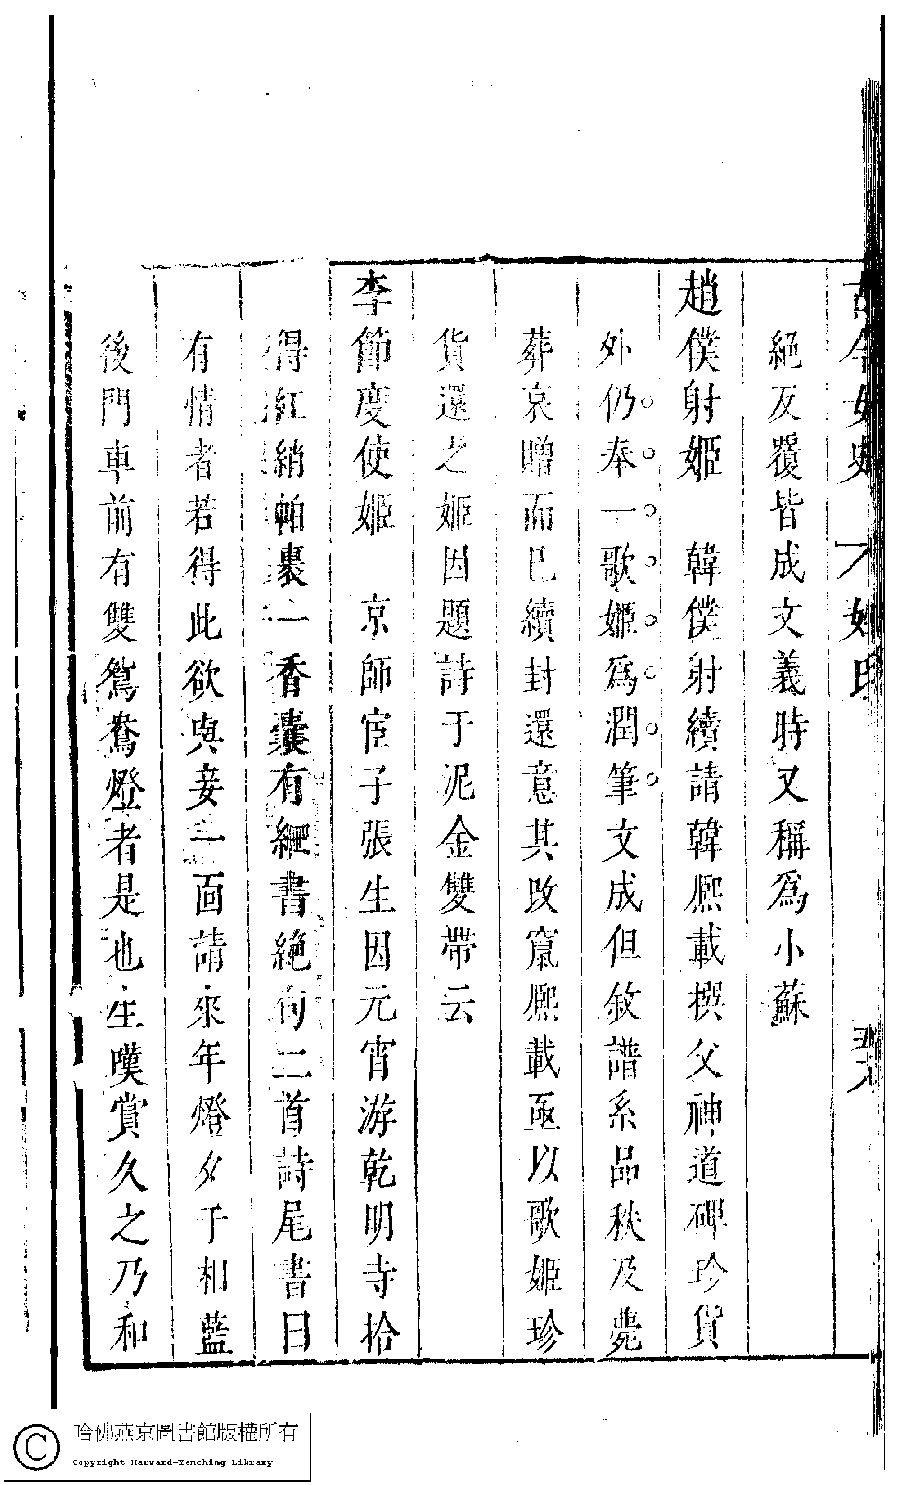 古今女史 姓氏
絕反覆皆成文義時又稱爲小蘇
趙僕射姬 韓僕射續請韓熙載撰父神道碑珍貨
外仍奉一歌姬爲潤筆文成但敘譜系品秩及薨
葬哀贈而已續封還意其改竄熙載亟以歌姬珍
貨還之姬因題詩于泥金雙帶云
李節度使姬 京師宦子張生因元宵游乾明寺拾
得紅綃帕裹一香囊有細書絕句二首詩尾書曰
有情者若得此欲與妾一面請來年燈夕于相藍
後門車前有雙鴛鴦燈者是也生嘆賞久之乃和
哈佛燕京圖書館版權所有
Copyright Harvard-Yenching Library